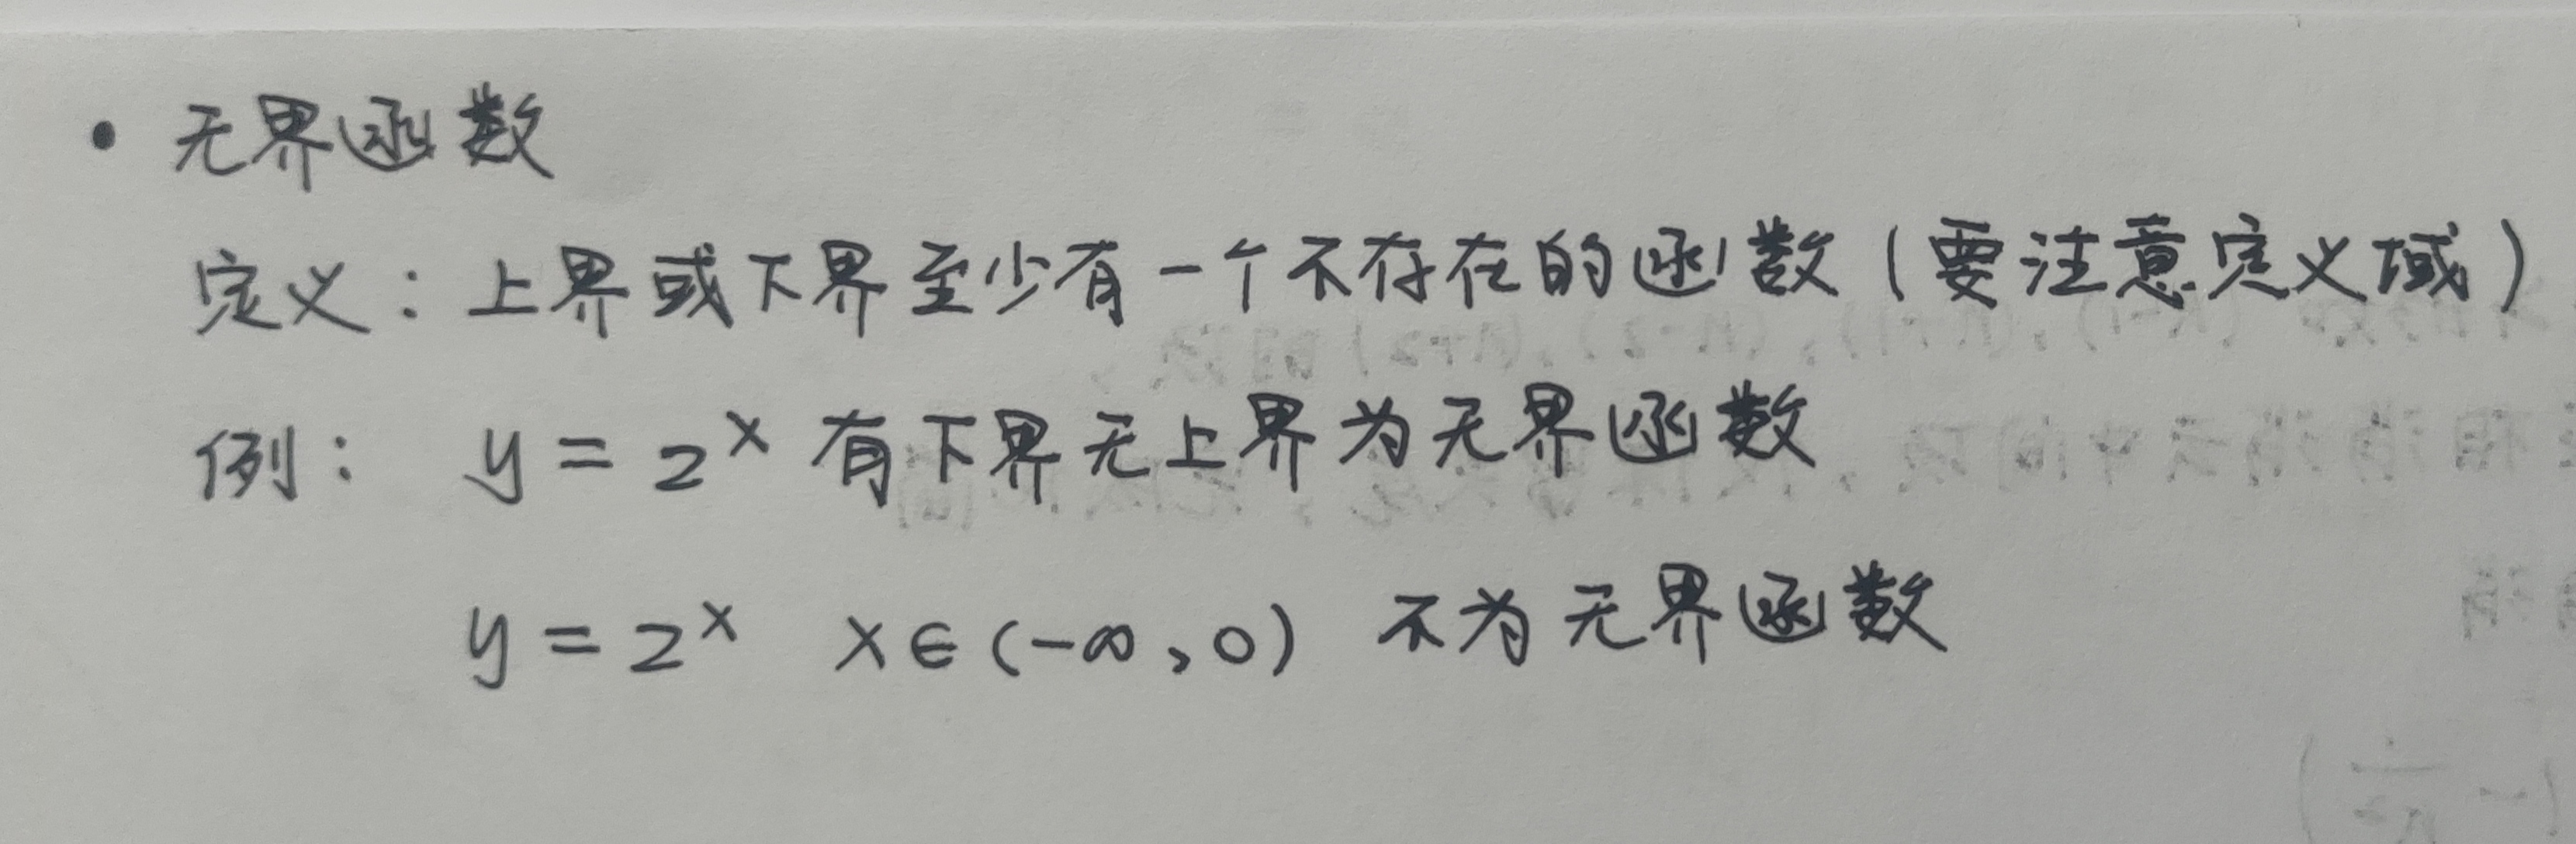 • 无界函数
定义：上界或下界至少有一个不存在的函数(要注意定义域)
例： y = 2^x 有下界无上界为无界函数
y = 2^x x∈(-∞,0) 不为无界函数